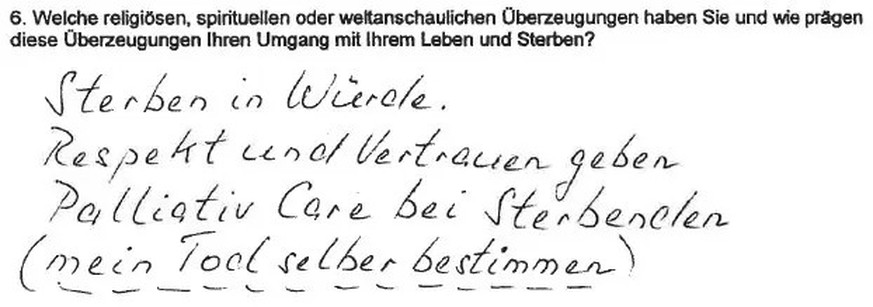 6. Welche religiösen, spirituellen oder weltanschaulichen Überzeugungen haben Sie und wie prägen
diese Überzeugungen Ihren Umgang mit Ihrem Leben und Sterben?
Sterben in Würde.
Respekt und Vertrauen geben
Palliativ Care bei Sterbenden
(mein Tod selber bestimmen)